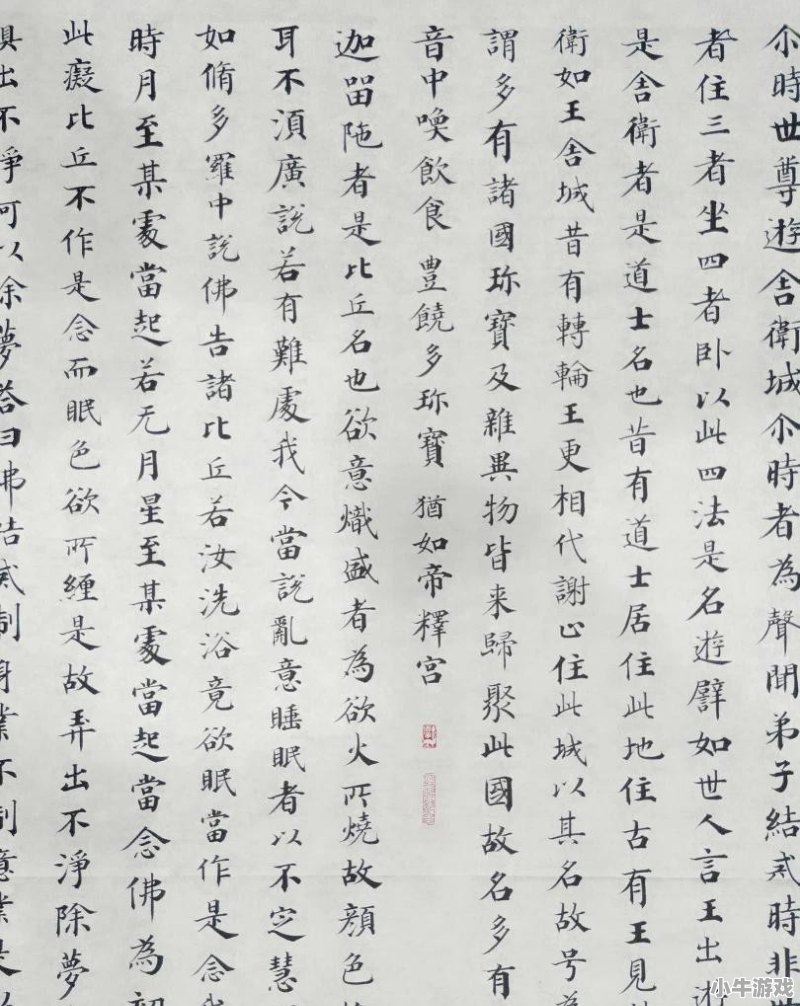 尒時世尊遊舍衛城尒時者為聲聞弟子結戒時非
者住三者坐四者卧以此四法是名遊譬如世人言王出遊
是舍衛者是道士名也昔有道士居住此地住古有王見
衛如王舍城昔有轉輪王更相代謝止住此城以其名故号為
謂多有諸國珎寶及雜異物皆来歸聚此國故名多有
音中喚飲食豊饒多珎寶猶如帝釋宮
迦留陁者是比丘名也欲意熾盛者為欲火所燒故顔色
耳不湏廣說若有難處我今當說亂意睡眠者以不定慧
如脩多羅中說佛告諸比丘若汝洗浴竟欲眠當作是念
時月至某處當起若无月星至某處當起當念佛為
此癡比丘不作是念而眠色欲所纏是故弄出不淨除夢
出不淨可以余夢荅曰佛結戒制身業不制意業是
小牛游戏